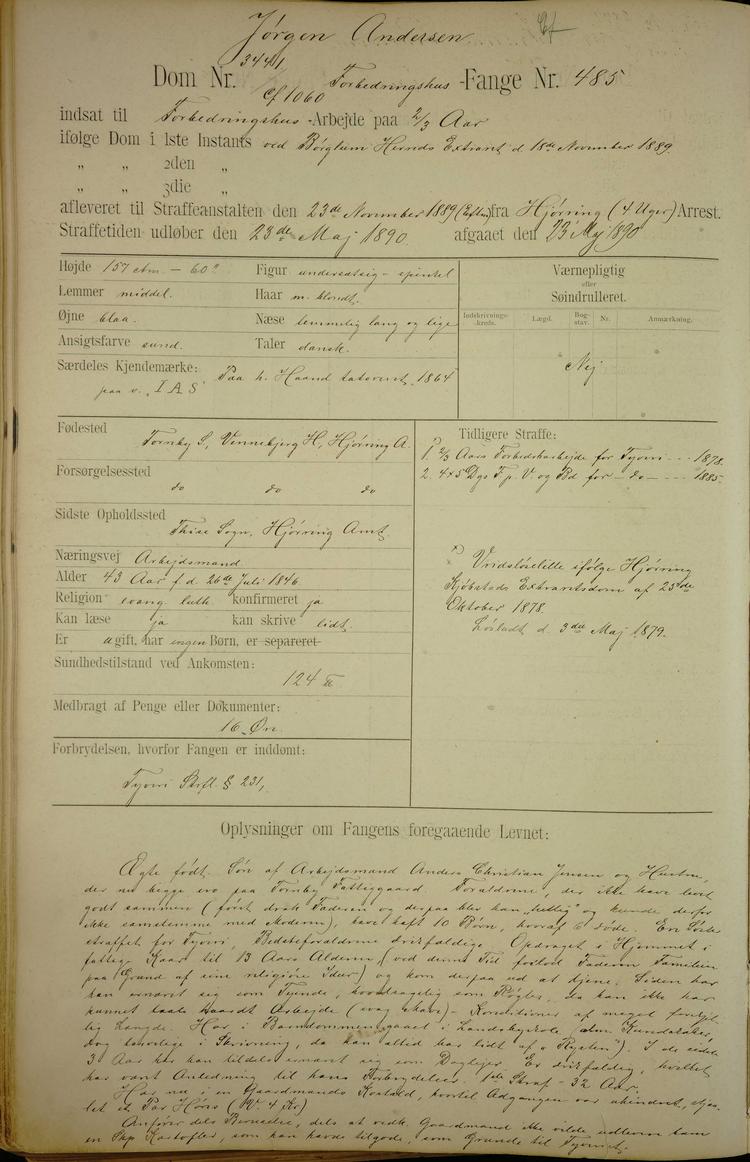 Jørgen Andersen
Dom Nr. 3441 Forbedringshus-Fange Nr. 485
cf 1060
indsat til Forbedringshus-Arbejde paa 2/3 Aar
ifølge Dom i 1ste Instants ved Børglum Herreds Extraret d 18de November 1889.
„ „ 2den „
„ „ 3die „
afleveret til Straffeanstalten den 23de November 1889 (Efterm) fra Hjørring (4 Uger) Arrest.
Straffetiden udløber den 23de Maj 1890. afgaaet den 23 Maj 1890
Højde 157 ctm. — 60" Figur undersætsig - spinkel
Lemmer middel. Haar m. blondt.
Øjne blaa. Næse temmelig lang og lige
Ansigtsfarve sund. Taler dansk.
Særdeles Kjendemærke: Paa h. Haand tatoveret 1864
paa v. „IAS"
Værnepligtig
eller
Søindrulleret.
Indskrivnings-kreds. Lægd. Bog-stav. Nr. Anmærkning.
Nej
Fødested
Tornby S, Vennebjerg H, Hjørring A.
Forsørgelsessted
do do do
Sidste Opholdssted
Thise Sogn, Hjørring Amt.
Næringsvej Arbejdsmand
Alder 43 Aar f d. 26de Juli 1846
Religion evang. luth. konfirmeret ja
Kan læse ja kan skrive lidt.
Er ugift, har ingen Børn, er separeret
Sundhedstilstand ved Ankomsten:
124 ℔
Medbragt af Penge eller Dokumenter:
16 Øre
Forbrydelsen, hvorfor Fangen er inddømt:
Tyveri Strfl. § 231,
Tidligere Straffe:
1. 2/3 Aars Forbedrhsarbejde for Tyveri - - - 1878.
2. 4x5 Dgs F. p. V. og Bd for — do — - - - 1885.
Vridsløselille ifølge Hjørring
Kjøbstads Extraretsdom af 23de
Oktober 1878.
Løsladt d. 3die Maj 1879.
Oplysninger om Fangens foregaaende Levnet:
Ægte født. Søn af Arbejdsmand Anders Christian Jensen og Hustru,
der nu begge ere paa Tornby Fattiggaard. Forældrene, der ikke have levet
godt sammen (først drak Faderen og derpaa blev han „hellig" og kunde derfor
ikke samstemme med Moderen), have haft 10 Børn, hvoraf 6 døde. En Søster
straffet for Tyveri, Bedsteforældrene drikfældige. Opdraget i Hjemmet i
fattige Kaar til 13 Aars Alderen (ved denne Tid forlod Faderen Familien
paa Grund af sine religiøse Ideer) og kom derpaa ud at tjene. Siden har
han ernæret sig som Tyende, hovedsagelig som Røgter, da han ikke har
kunnet taale haardt Arbejde (svag). Konditioner af meget forskjel-
lig Længde. Har i Barndommen gaaet i Landsbyskole, alm. Kundskaber,
dog daarlige i Skrivning, da han altid har lidt af „Rysten"). I de sidste
3 Aar har han tildels ernæret sig som Daglejer. Er drikfældig, hvilket
har været Anledning til hans Forbrydelser. 1ste Straf - 32 Aar.
Har nu i en Gaardmands Kostald, hvortil Adgangen var uhindret, stjaa-
let et Par Høns (V. 4 Kr)
Anfører dels Brændevin, dels at vedk. Gaardmand ikke vilde udlevere ham
en Skp Kartofler, som han havde tilgode, som Grunde til Tyveriet.